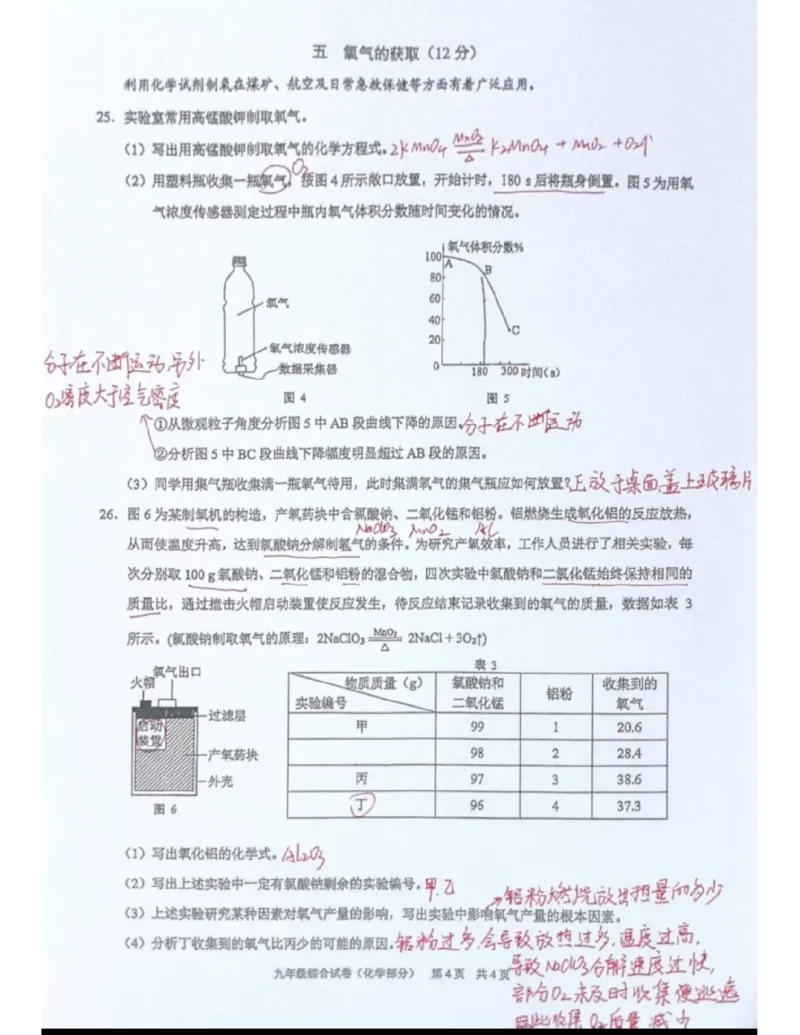 五 氧气的获取（12 分）
利用化学试剂制氧在煤矿、航空及日常急救保健等方面有着广泛应用。
25．实验室常用高锰酸钾制取氧气。
（1）写出用高锰酸钾制取氧气的化学方程式。2KMnO4 MnO2 △ K2MnO4 + MnO2 + O2↑
O2
（2）用塑料瓶收集一瓶氧气，按图 4 所示敞口放置，开始计时，180 s 后将瓶身倒置。图 5 为用氧
气浓度传感器测定过程中瓶内氧气体积分数随时间变化的情况。
氧气
氧气浓度传感器
数据采集器
图 4
氧气体积分数%
100
80
60
40
20
0
A
B
C
180 300 时间(s)
图 5
分子在不断运动,另外
O2密度大于空气密度
①从微观粒子角度分析图 5 中 AB 段曲线下降的原因。分子在不断运动
②分析图 5 中 BC 段曲线下降幅度明显超过 AB 段的原因。
（3）同学用集气瓶收集满一瓶氧气待用，此时集满氧气的集气瓶应如何放置?正放于桌面,盖上玻璃片
26．图 6 为某制氧机的构造，产氧药块中含氯酸钠、二氧化锰和铝粉。铝燃烧生成氧化铝的反应放热，
NaClO3 MnO2 Al
从而使温度升高，达到氯酸钠分解制氧气的条件。为研究产氧效率，工作人员进行了相关实验，每
次分别取 100 g 氯酸钠、二氧化锰和铝粉的混合物，四次实验中氯酸钠和二氧化锰始终保持相同的
质量比，通过撞击火帽启动装置使反应发生，待反应结束记录收集到的氧气的质量，数据如表 3
所示。(氯酸钠制取氧气的原理：2NaClO3 MnO2 △ 2NaCl + 3O2↑)
氧气出口
火帽
过滤层
启动
装置
产氧药块
外壳
图 6
表 3
物质质量（g） 氯酸钠和二氧化锰 铝粉 收集到的氧气
实验编号
甲 99 1 20.6
98 2 28.4
丙 97 3 38.6
丁 96 4 37.3
（1）写出氧化铝的化学式。Al2O3
（2）写出上述实验中一定有氯酸钠剩余的实验编号。甲.乙
铝粉燃烧放出热量的多少
（3）上述实验研究某种因素对氧气产量的影响，写出实验中影响氧气产量的根本因素。
（4）分析丁收集到的氧气比丙少的可能的原因。铝粉过多,会导致放热过多,温度过高,
导致NaClO3分解速度过快,
部分O2未及时收集便逃逸
因此收集O2质量减少
九年级综合试卷（化学部分） 第 4 页 共 4 页